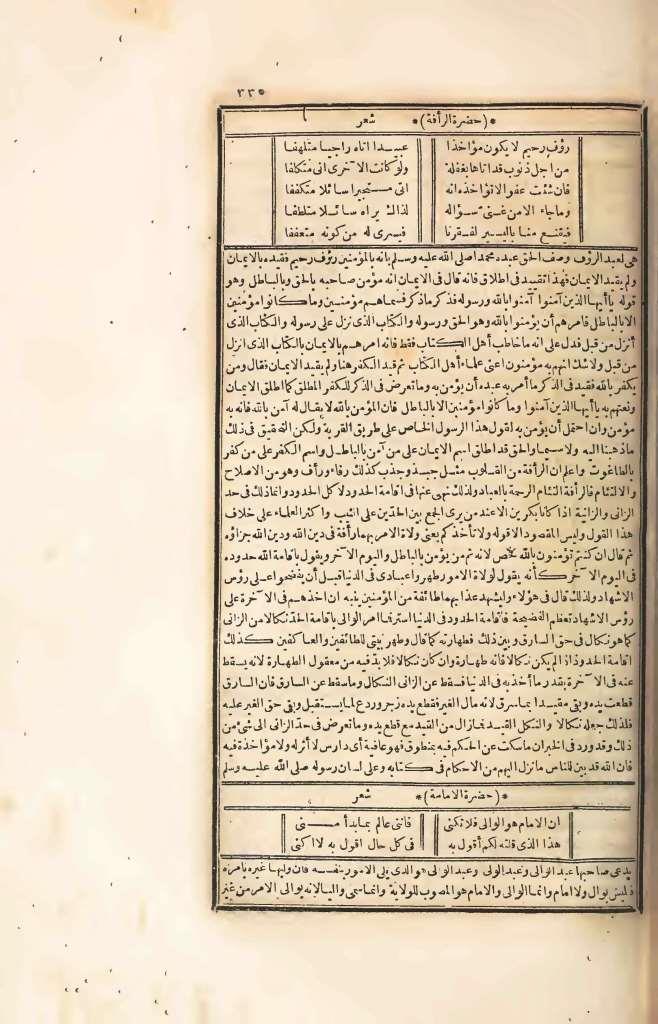 ٣٣٥
* (حضرة الرأفة) * شعر
رؤف رحيم لا يكون مؤاخذا عبيدا أتاه راجيا متلهفا
من أجل ذنوب قد أتاها بغفلة ولو كانت الاخرى أتى متكلفا
فان شئت عفو الا تؤاخذانه أتى مستجيرا سائلا متكففا
وما جاء الا من غنى سؤاله لذاك يراه سائلا متلطفا
فيقنع منا باليسير لفقرنا فيسرى له من كونه متعففا
هى لعبد الرؤف وصف الحق عبده محمدا صلى الله عليه وسلم بانه بالمؤمنين رؤف رحيم فقيده بالايمان
ولم يقيد الايمان فهذا تقييد فى اطلاق فانه قال فى الايمان انه مؤمن صاحبه بالحق وبالباطل وهو
قوله يا أيها الذين آمنوا آمنوا بالله ورسوله فذكر ما ذكر فسماهم مؤمنين وما كانوا مؤمنين
الا بالباطل فامرهم أن يؤمنوا بالله وهو الحق ورسوله والكتاب الذى نزل على رسوله والكتاب الذى
أنزل من قبل فدل على انه ما خاطب أهل الكتاب فقط فانه امرهم بالايمان بالكتاب الذى انزل
من قبل ولا شك انهم به مؤمنون اعنى علماء أهل الكتاب ثم قيد الكفر هنا ولم يقيد الايمان فقال ومن
يكفر بالله فقيد فى الذكر ما أمر به عبده أن يؤمن به وما تعرض فى الذكر للكفر المطلق كما اطلق الايمان
ونعتهم به يا أيها الذين آمنوا وما كانوا مؤمنين الا بالباطل فان المؤمن بالله لا يقال له آمن بالله فانه به
مؤمن وان احتمل أن يؤمن به لقول هذا الرسول الخاص على طريق القربة ولكن التحقيق فى ذلك
ما ذهبنا اليه ولا سيما والحق قد اطلق اسم الايمان على من آمن بالباطل واسم الكفر على من كفر
بالطاغوت واعلم ان الرأفة من القلوب مثل جبذ وجذب كذلك رفاء ورأف وهو من الاصلاح
والالتئام فالرأفة التئام الرحمة بالعباد ولذلك نهى عنها فى اقامة الحدود لا كل الحدود وانما ذلك فى حد
الزانى والزانية اذا كانا بكرين الا عند من يرى الجمع بين الحدين على الثيب واكثر العلماء على خلاف
هذا القول وليس المقصود الا قوله ولا تأخذكم يعنى ولاة الامر بهما رأفة فى دين الله ودين الله جزاؤه
ثم قال ان كنتم تؤمنون بالله تخصص لانه ثم من يؤمن بالباطل واليوم الآخر ويقول باقامة الله حدوده
فى اليوم الآخر كأنه يقول لولاة الامور طهروا عبادى فى الدنيا قبل أن يفضحوا على رؤس
الاشهاد ولذلك قال فى هؤلاء وليشهد عذابهما طائفة من المؤمنين ينبه ان اخذهم فى الآخرة على
رؤس الاشهاد تعظم الفضيحة فاقامة الحدود فى الدنيا استر فامر الوالى باقامة الحد نكالا من الزانى
كما هو نكال فى حق السارق وبين ذلك فطهارته كما قال وطهر بيتى للطائفين والعاكفين كذلك
اقامة الحدود اذ الم يكن نكالا فانه طهارة وان كان نكالا فلا بد فيه من معقول الطهارة لانه يسقط
عنه فى الآخرة بقدر ما أخذ به فى الدنيا فسقط عن الزانى النكال وما سقط عن السارق فان السارق
قطعت يده وبقى مقيدا بما سرق لانه مال الغير فقطع يده زجر وردع لما يستقبل وبقى حق الغير عليه
فلذلك جعله نكالا والنكل القيد فما زال من القيد مع قطع يده وما تعرض فى حد الزانى الى شئ من
ذلك وقد ورد فى الخبر ان ما سكت عن الحكم فيه بمنطوق فهو عافية أى دارس لا أثر له ولا مؤاخذة فيه
فان الله قد بين للناس ما نزل اليهم من الاحكام فى كتابه وعلى لسان رسوله صلى الله عليه وسلم
* (حضرة الامامة) * شعر
ان الامام هو الوالى فلا تكنى فاننى عالم بما بدأ منى
هذا الذى قلته لكم أقول به فى كل حال اقول به لا اكنى
يدعى صاحبها عبد الوالى وعبد الولى وعبد الوالى هو الذى يلى الامور بنفسه فان وليها غيره بامره
فليس بوال ولا امام وانما الوالى والامام هو المنصوب للولاية وانما سمى واليا لانه يوالى الامر من غير